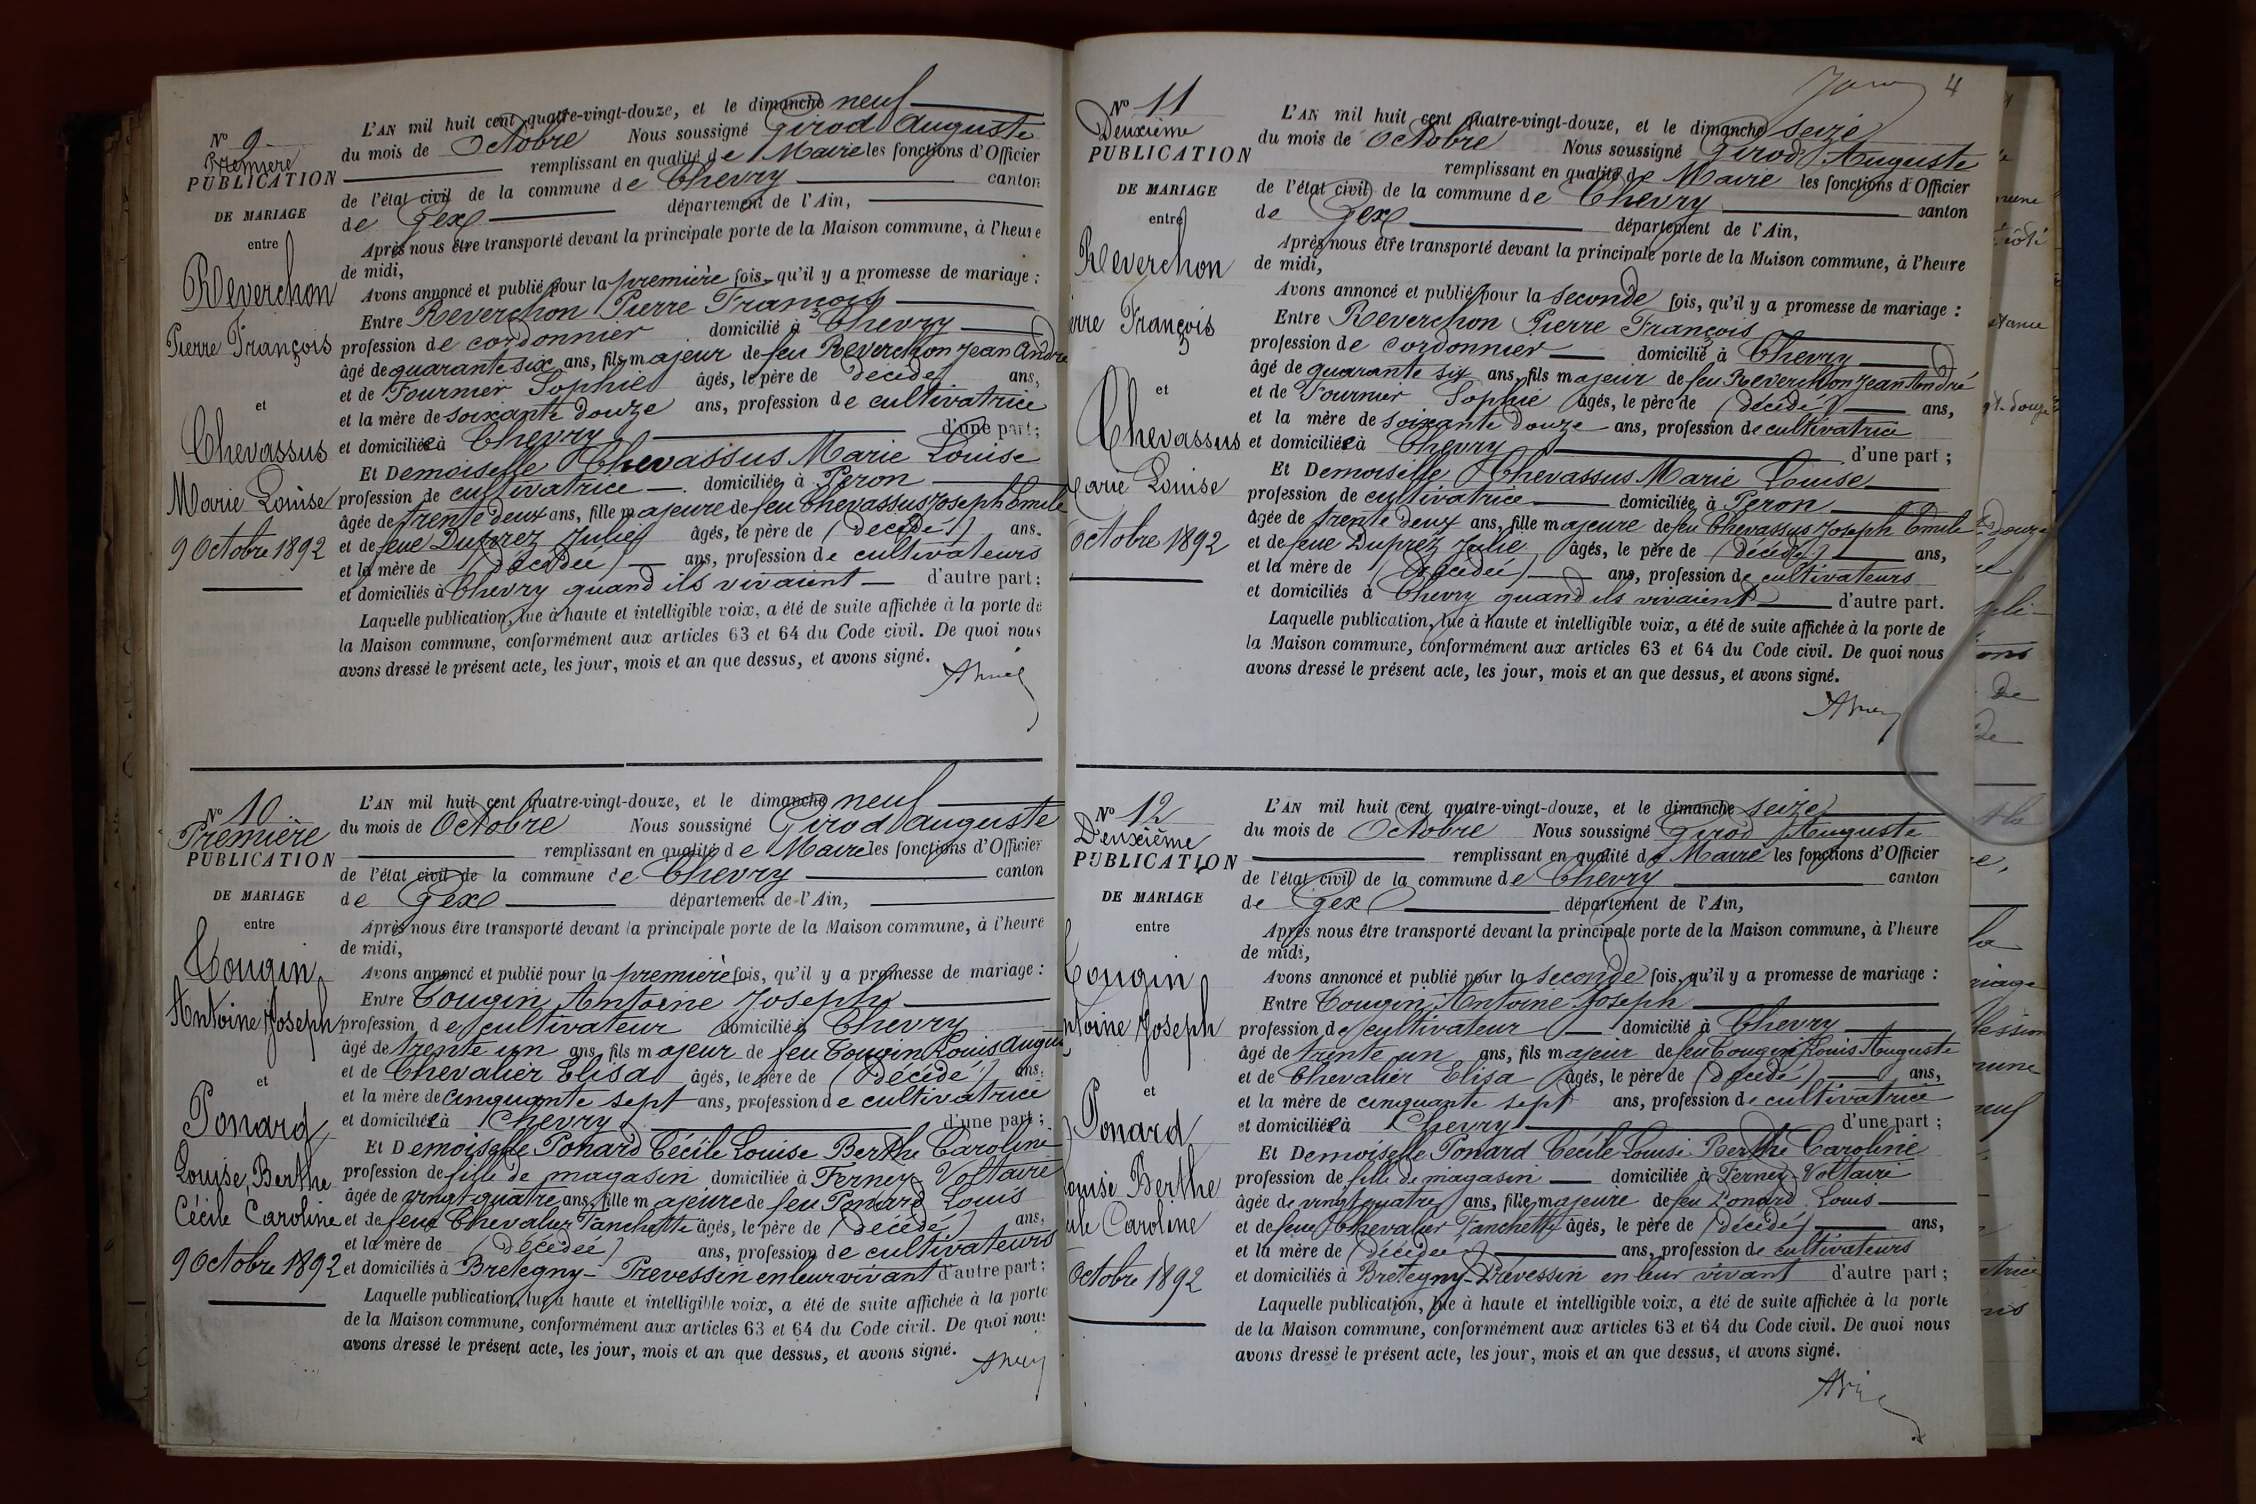 N° 9
Première
PUBLICATION
DE MARIAGE
entre
Reverchon
Pierre François
et
Chevassus
Marie Louise
9 Octobre 1892
L'AN mil huit cent quatre-vingt-douze, et le dimanche neuf
du mois de Octobre Nous soussigné Girod Auguste
remplissant en qualité de Maire les fonctions d'Officier
de l'état civil de la commune de Chevry canton
de Gex département de l'Ain,
Après nous être transporté devant la principale porte de la Maison commune, à l'heure
de midi,
Avons annoncé et publié pour la première fois, qu'il y a promesse de mariage :
Entre Reverchon Pierre François
profession de cordonnier domicilié à Chevry
âgé de quarante six ans, fils majeur de feu Reverchon Jean André
et de Fournier Sophie âgés, le père de décédé ans,
et la mère de soixante douze ans, profession de cultivatrice
et domiciliée à Chevry d'une part ;
Et Demoiselle Chevassus Marie Louise
profession de cultivatrice domiciliée à Peron
âgée de trente deux ans, fille majeure de feu Chevassus Joseph Emile
et de feue Duprez Julie âgés, le père de (décédé) ans.
et la mère de (décédée) ans, profession de cultivateurs
et domiciliés à Chevry quand ils vivaient d'autre part :
Laquelle publication, lue à haute et intelligible voix, a été de suite affichée à la porte de
la Maison commune, conformément aux articles 63 et 64 du Code civil. De quoi nous
avons dressé le présent acte, les jour, mois et an que dessus, et avons signé.
N° 10
Première
PUBLICATION
DE MARIAGE
entre
Tougin
Antoine Joseph
et
Ponard
Louise, Berthe
Cécile Caroline
9 Octobre 1892
L'AN mil huit cent quatre-vingt-douze, et le dimanche neuf
du mois de Octobre Nous soussigné Girod Auguste
remplissant en qualité de Maire les fonctions d'Officier
de l'état civil de la commune de Chevry canton
de Gex département de l'Ain,
Après nous être transporté devant la principale porte de la Maison commune, à l'heure
de midi,
Avons annoncé et publié pour la première fois, qu'il y a promesse de mariage :
Entre Tougin Antoine Joseph
profession de cultivateur domicilié à Chevry
âgé de trente un ans, fils majeur de feu Tougin Louis Augu
et de Chevalier Elisa âgés, le père de (décédé) ans,
et la mère de cinquante sept ans, profession de cultivatrice
et domiciliée à Chevry d'une part ;
Et Demoiselle Ponard Cécile Louise Berthe Caroline
profession de fille de magasin domiciliée à Ferney-Voltaire
âgée de vingt quatre ans, fille majeure de feu Ponard Louis
et de feue Chevalier Fanchette âgés, le père de (décédé) ans,
et la mère de (décédée) ans, profession de cultivateurs
et domiciliés à Bretegny-Prevessin en leur vivant d'autre part ;
Laquelle publication, lue à haute et intelligible voix, a été de suite affichée à la porte
de la Maison commune, conformément aux articles 63 et 64 du Code civil. De quoi nous
avons dressé le présent acte, les jour, mois et an que dessus, et avons signé.
4
N° 11
Deuxième
PUBLICATION
DE MARIAGE
entre
Reverchon
erre François
et
Chevassus
Marie Louise
Octobre 1892
L'AN mil huit cent quatre-vingt-douze, et le dimanche seize
du mois de Octobre Nous soussigné Girod Auguste
remplissant en qualité de Maire les fonctions d'Officier
de l'état civil de la commune de Chevry canton
de Gex département de l'Ain,
Après nous être transporté devant la principale porte de la Maison commune, à l'heure
de midi,
Avons annoncé et publié pour la seconde fois, qu'il y a promesse de mariage :
Entre Reverchon Pierre François
profession de cordonnier domicilié à Chevry
âgé de quarante six ans, fils majeur de feu Reverchon Jean André
et de Fournier Sophie âgés, le père de (décédé) ans,
et la mère de soixante douze ans, profession de cultivatrice
et domiciliée à Chevry d'une part ;
Et Demoiselle Chevassus Marie Louise
profession de cultivatrice domiciliée à Peron
âgée de trente deux ans, fille majeure de feu Chevassus Joseph Emile
et de feue Duprez Julie âgés, le père de (décédé) ans,
et la mère de (décédée) ans, profession de cultivateurs
et domiciliés à Chevry quand ils vivaient d'autre part.
Laquelle publication, lue à haute et intelligible voix, a été de suite affichée à la porte de
la Maison commune, conformément aux articles 63 et 64 du Code civil. De quoi nous
avons dressé le présent acte, les jour, mois et an que dessus, et avons signé.
N° 12
Deuxième
PUBLICATION
DE MARIAGE
entre
Tougin
ntoine Joseph
et
Ponard
ouise Berthe
cile Caroline
Octobre 1892
L'AN mil huit cent quatre-vingt-douze, et le dimanche seize
du mois de Octobre Nous soussigné Girod Auguste
remplissant en qualité de Maire les fonctions d'Officier
de l'état civil de la commune de Chevry canton
de Gex département de l'Ain,
Après nous être transporté devant la principale porte de la Maison commune, à l'heure
de midi,
Avons annoncé et publié pour la seconde fois, qu'il y a promesse de mariage :
Entre Tougin Antoine Joseph
profession de cultivateur domicilié à Chevry
âgé de trente un ans, fils majeur de feu Tougin Louis Auguste
et de Chevalier Elisa âgés, le père de (décédé) ans,
et la mère de cinquante sept ans, profession de cultivatrice
et domiciliée à Chevry d'une part ;
Et Demoiselle Ponard Cécile Louise Berthe Caroline
profession de fille de magasin domiciliée à Ferney-Voltaire
âgée de vingt quatre ans, fille majeure de feu Ponard Louis
et de feue Chevalier Fanchette âgés, le père de (décédé) ans,
et la mère de (décédée) ans, profession de cultivateurs
et domiciliés à Bretegny-Prévessin en leur vivant d'autre part ;
Laquelle publication, lue à haute et intelligible voix, a été de suite affichée à la porte
de la Maison commune, conformément aux articles 63 et 64 du Code civil. De quoi nous
avons dressé le présent acte, les jour, mois et an que dessus, et avons signé.